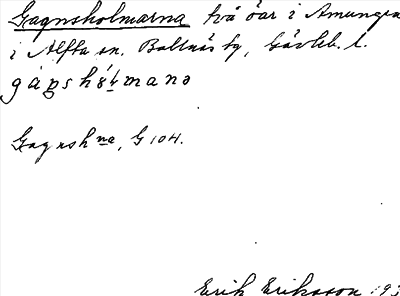 Gagnsholmarna två öar i Amungen
i Alfta sn. Bollnäs tg, Gävleb. l.
Gagnshna, G 104.
Erik Eriksson 193